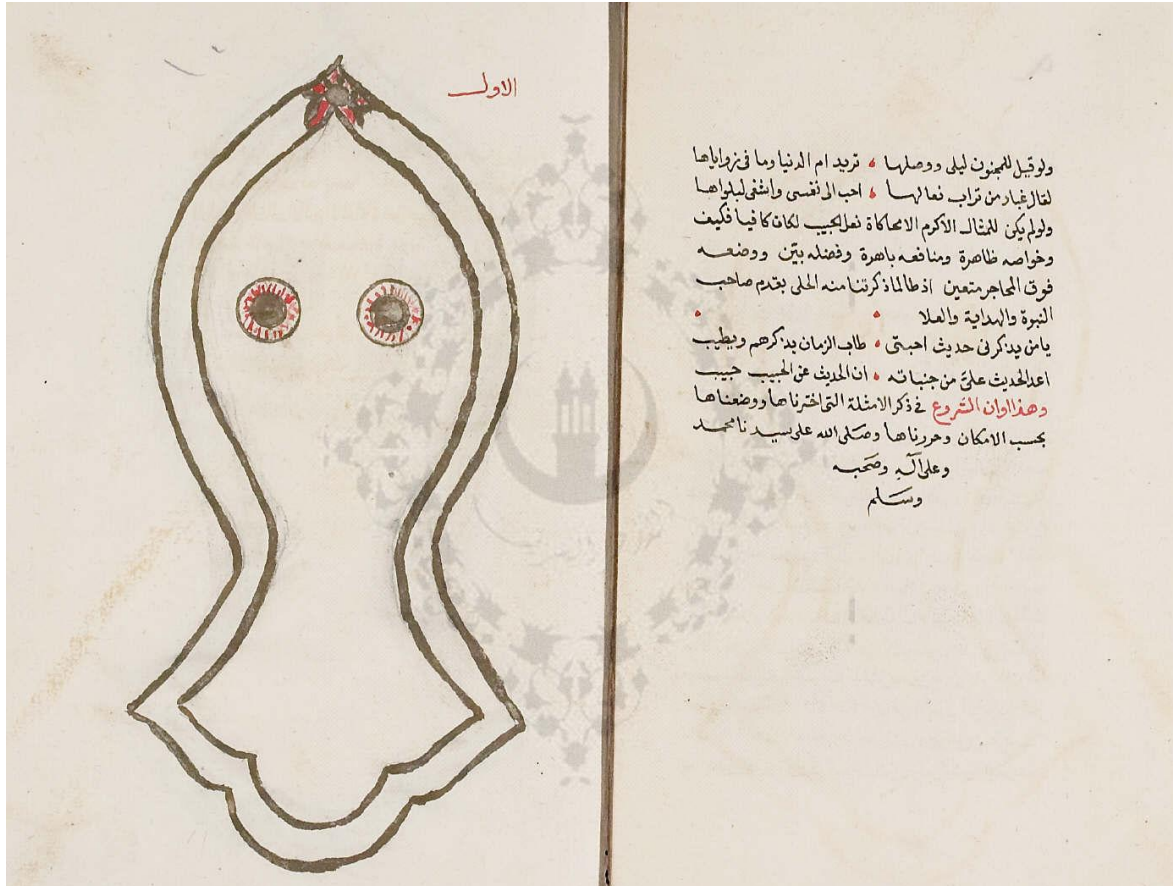 ولو قيل للمجنون ليلى ووصلها ، تريد ام الدنيا وما فى زواياها
لقال غبار من تراب نعالها ، احب الى نفسى واشفى لبلواها
ولو لم يكن للمثال الاكرم الا محاكاة نعل الحبيب لكان كافيا فكيف
وخواصه ظاهرة ومنافعه باهرة وفضله بين ووضعه
فوق المحاجر متعين اذ طالما ذكرتنا منه الحلى بقدم صاحب
النبوة والهداية والعلا
يا من يذكرنى حديث احبتى ، طاب الزمان بذكرهم ويطيب
اعد الحديث علىّ من جنباته ، ان الحديث عن الحبيب حبيب
وهذا اوان الشروع فى ذكر الامثلة التى اخترناها ووضعناها
بحسب الامكان وحررناها وصلى الله على سيدنا محمد
وعلى آله وصحبه
وسلم
الاول